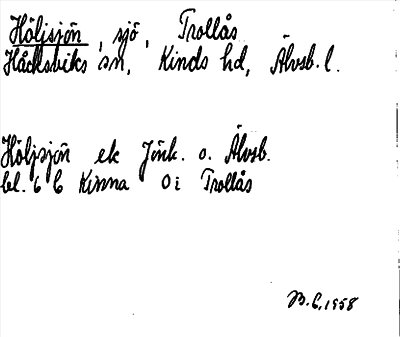 Höljsjön, sjö, Trollås
Håcksviks sn, Kinds hd, Älvsb. l.
Höljsjön ek Jönk. o. Älvsb.
bl. 6 6 Kinna Oi Trollås
B.C. 1958